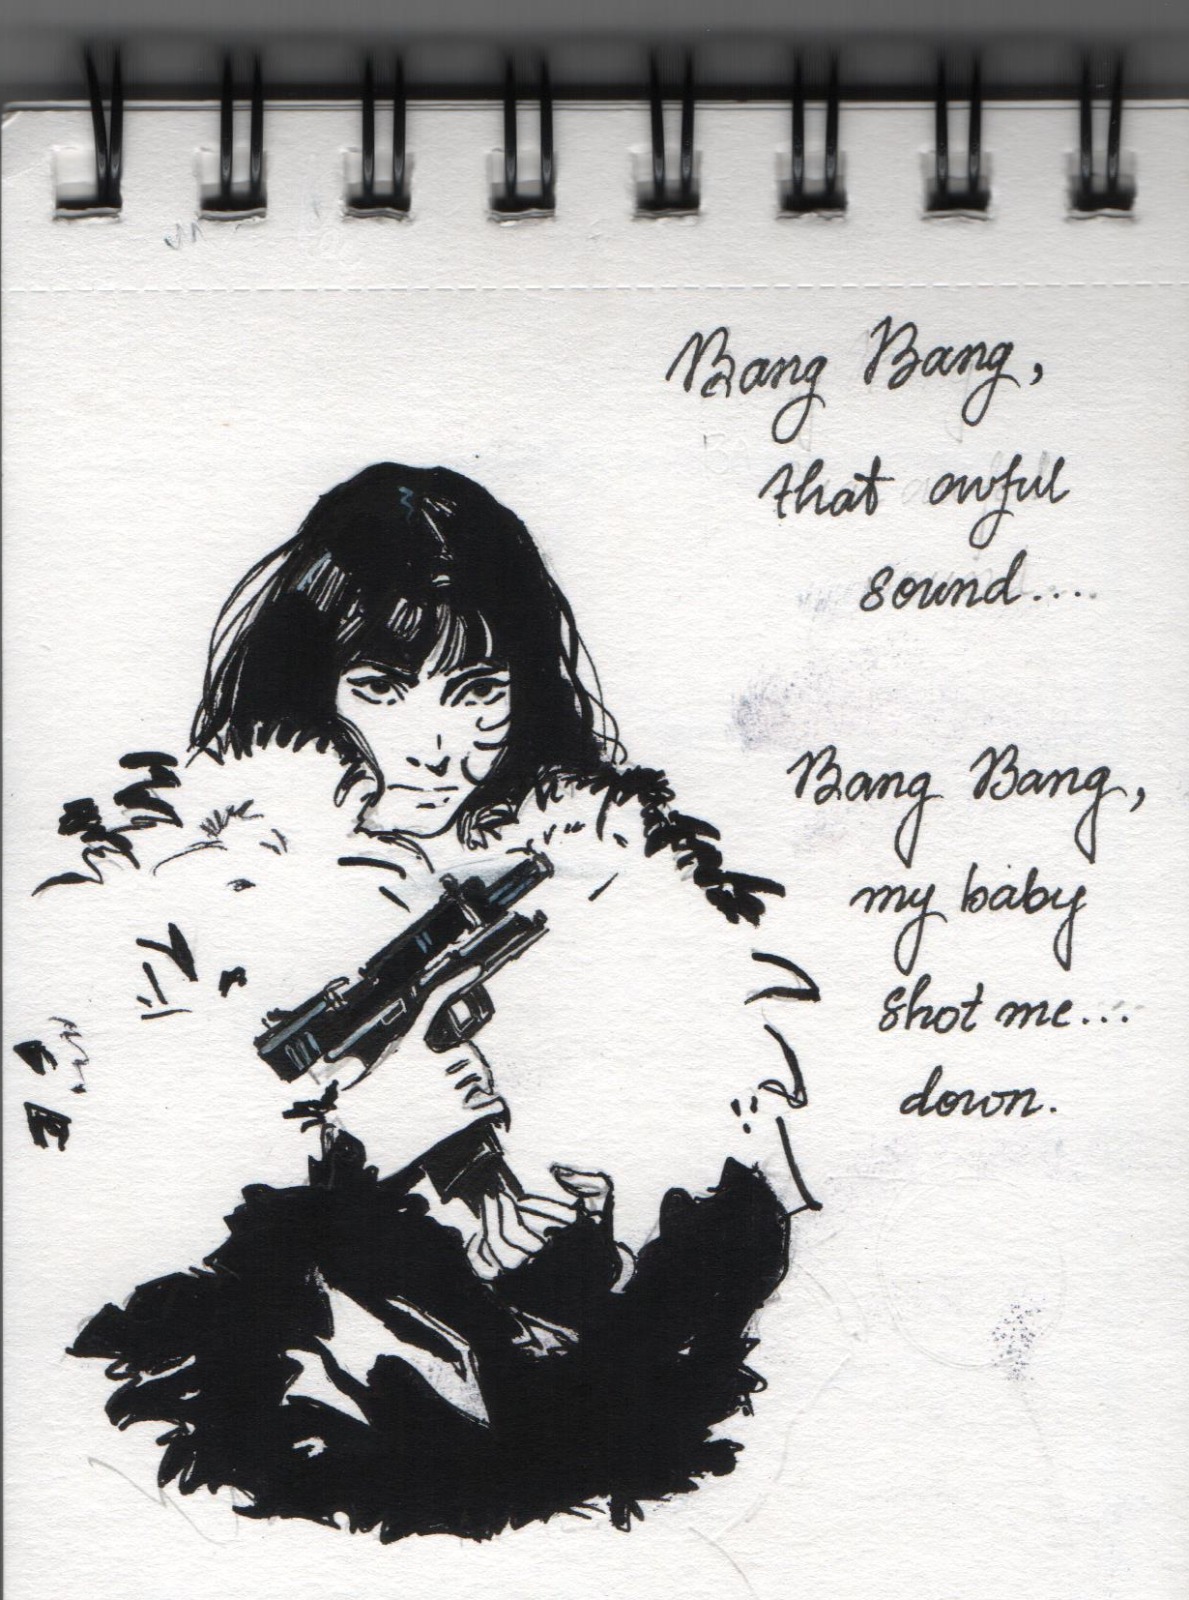 Bang Bang,
that awful
sound....
Bang Bang,
my baby
shot me...
down.